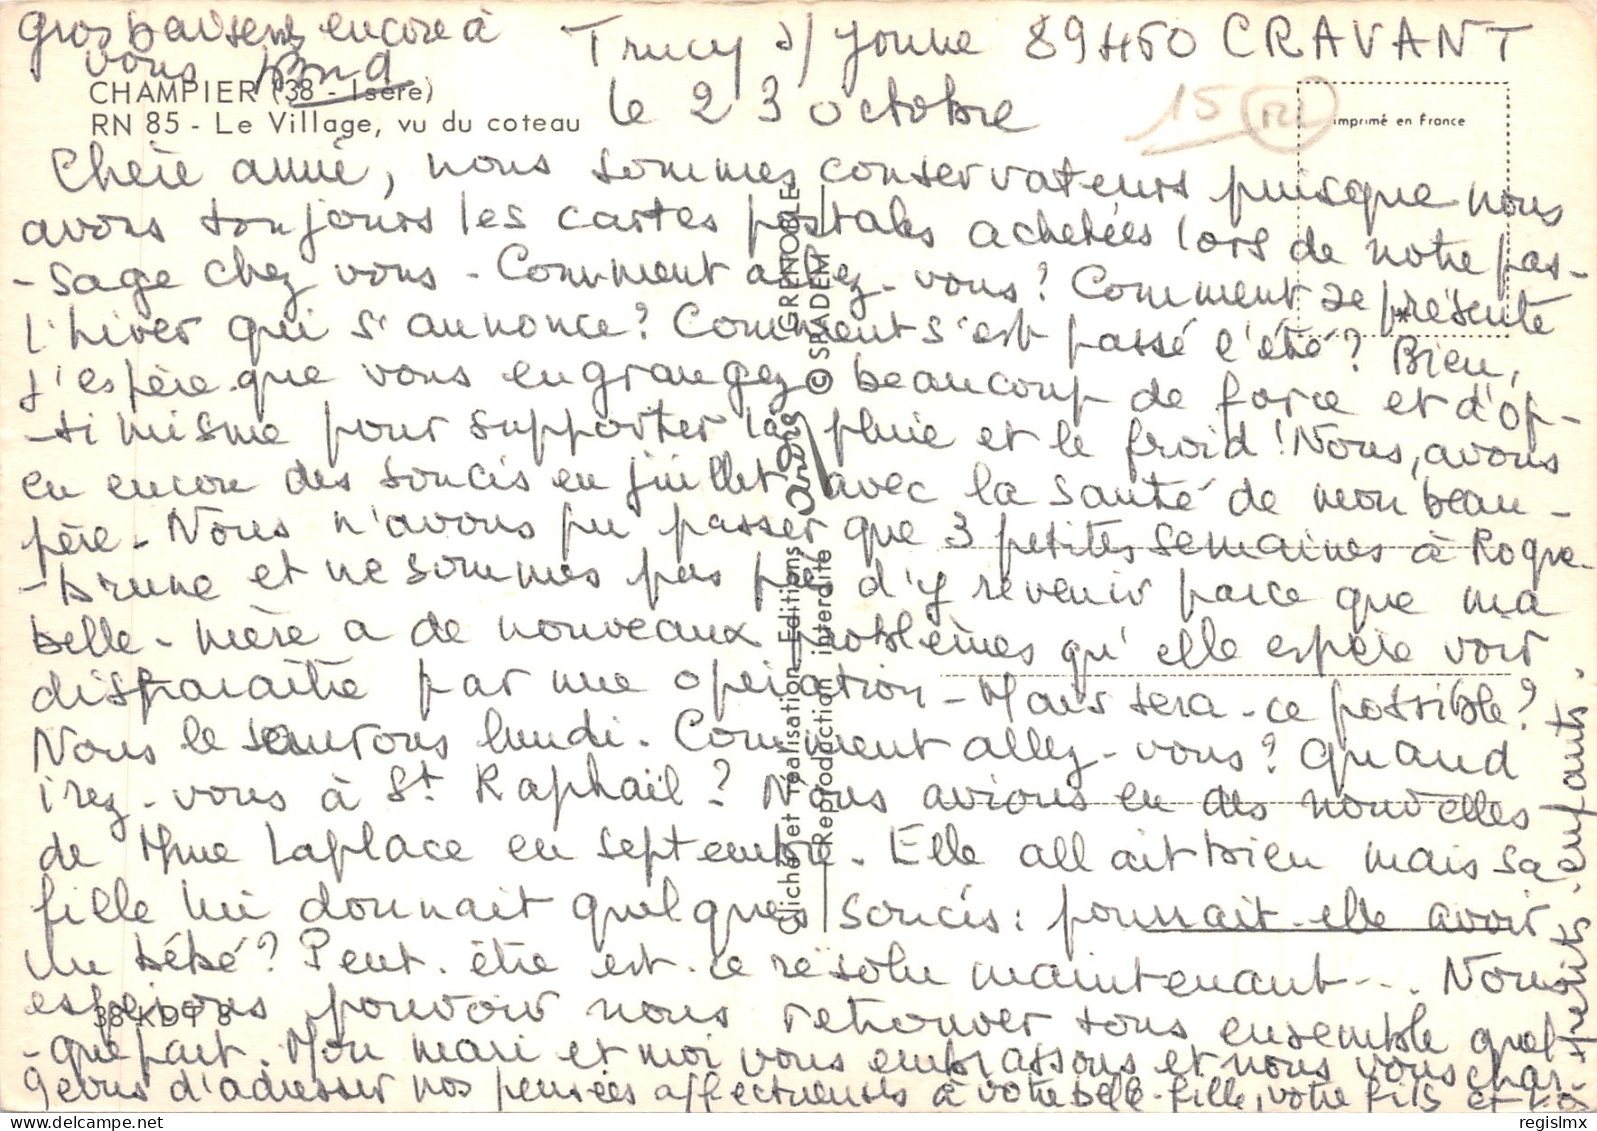 Gros baisers encore à
vous
Trucy s/ Yonne 89460 CRAVANT
le 23 octobre
CHAMPIER (38 - Isère)
RN 85 - Le Village, vu du coteau
15
Imprimé en France
Chère amie, nous sommes conservateurs puisque nous
avons toujours les cartes postales achetées lors de notre pas-
-sage chez vous - Comment allez-vous? Comment se présente
l'hiver qui s'annonce? Comment s'est passé l'été? Bien,
j'espère que vous engrangez beaucoup de force et d'op-
-timisme pour supporter la pluie et le froid! Nous, avons
eu encore des soucis en juillet avec la santé de mon beau-
père - Nous n'avons pu passer que 3 petites semaines à Roque-
-brune et ne sommes pas d'y revenir parce que ma
belle-mère a de nouveaux problèmes qu'elle espère voir
disparaître par une opération - Mais sera-ce possible?
Nous le saurons lundi. Comment allez-vous? Quand
irez-vous à St Raphaël? Nous avions eu des nouvelles
de Mme Laplace en septembre. Elle allait bien mais sa
fille lui donnait quelques soucis: pourrait-elle avoir
un bébé? Peut-être est-ce résolu maintenant... Nous
espérons pouvoir nous retrouver tous ensemble quel-
-que part. Mon mari et moi vous embrassons et nous vous char-
geons d'adresser nos pensées affectueuses à votre belle-fille, votre fils et vos
petits-enfants.
38 KDT 8
Cliché et réalisation Editions André GRENOBLE
Reproduction interdite © SPADEM
regislmx